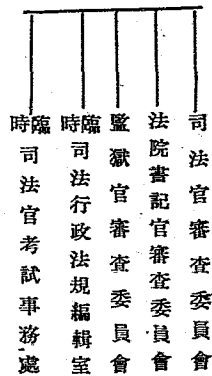 司法官審查委員會
法院書記官審查委員會
監獄官審查委員會
臨時司法行政法規編輯室
臨時司法官考試事務處